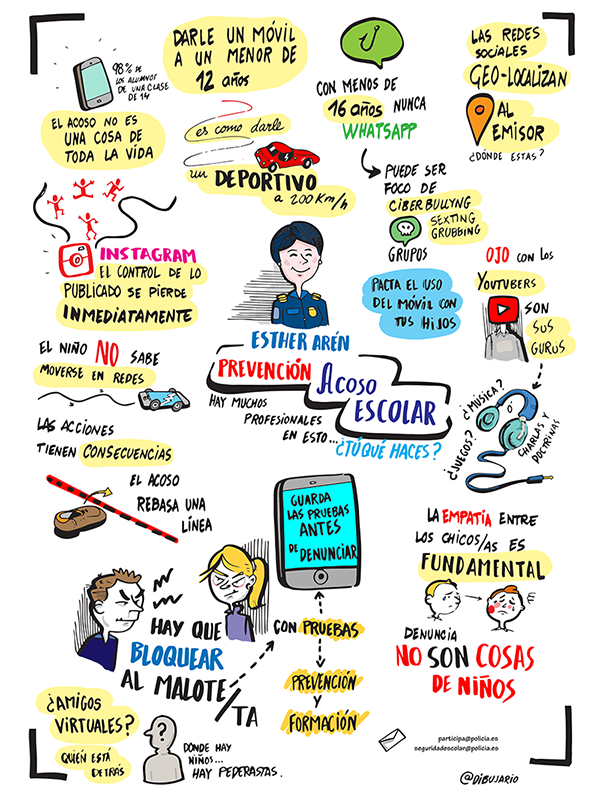 98% DE
LOS ALUMNOS
DE UNA CLASE
DE 14
EL ACOSO NO ES
UNA COSA DE
TODA LA VIDA
DARLE UN MÓVIL
A UN MENOR DE
12 años
es como darle
un DEPORTIVO
a 200 Km/h
CON MENOS DE
16 años NUNCA
WHATSAPP
PUEDE SER
FOCO DE
CIBERBULLYNG
SEXTING
GRUBBING
GRUPOS
LAS REDES
SOCIALES
GEO-LOCALIZAN
AL
EMISOR
¿DÓNDE ESTAS?
INSTAGRAM
EL CONTROL DE LO
PUBLICADO SE PIERDE
INMEDIATAMENTE
PACTA EL USO
DEL MÓVIL CON
TUS HIJOS
OJO CON LOS
YOUTUBERS
SON
SUS
GURÚS
¿MÚSICA?
¿JUEGOS?
CHARLAS Y
DOCTRINAS
ESTHER ARÉN
PREVENCIÓN ACOSO
ESCOLAR
HAY MUCHOS
PROFESIONALES
EN ESTO...
¿TÚ QUÉ HACES?
EL NIÑO NO SABE
MOVERSE EN REDES
LAS ACCIONES
TIENEN CONSECUENCIAS
EL ACOSO
REBASA UNA
LÍNEA
GUARDA
LAS PRUEBAS
ANTES
DE DENUNCIAR
HAY QUE
BLOQUEAR
AL MALOTE/TA
CON PRUEBAS
PREVENCIÓN
Y
FORMACIÓN
LA EMPATÍA ENTRE
LOS CHICOS/AS ES
FUNDAMENTAL
DENUNCIA
NO SON COSAS
DE NIÑOS
¿AMIGOS
VIRTUALES?
QUIÉN ESTÁ
DETRÁS
?
DONDE HAY
NIÑOS...
HAY PEDERASTAS.
participa@policia.es
seguridadescolar@policia.es
@DIBUJARIO